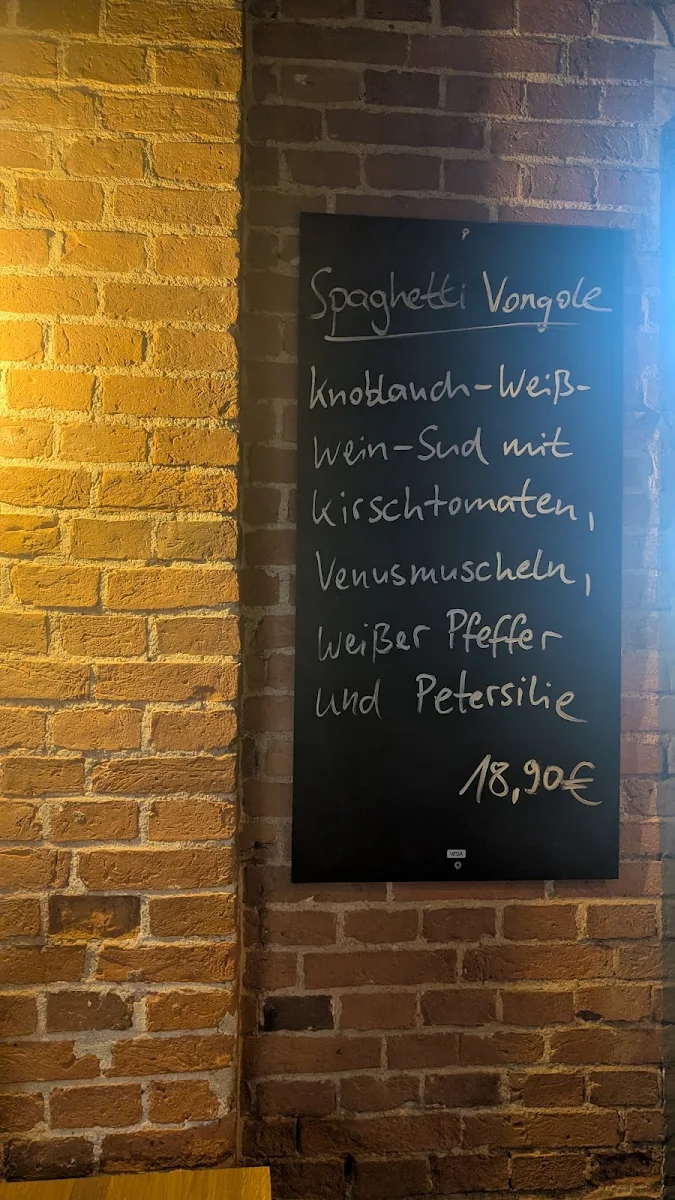 Spaghetti Vongole
Knoblauch-Weiß-
Wein-Sud mit
Kirschtomaten,
Venusmuscheln,
weißer Pfeffer
und Petersilie
18,90€
VEGA